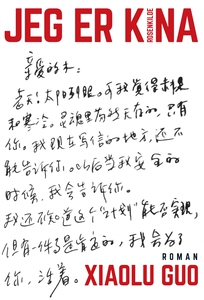 JEG ER KINA
ROSENKILDE
亲爱的木:
老天!太阳刺眼。可我覺得
和寒冷。灵魂里 有的,只有
你。我现在写信的地方,还不
能告诉你。以后当我安全的
时候,我会告诉你。
我还不知道这个“计划”能否实现,
但有一件事是肯定的,我会为了
你,活着。
ROMAN
XIAOLU GUO